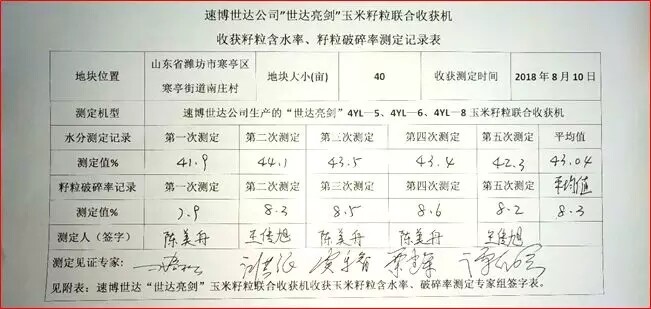 速博世达公司"世达亮剑"玉米籽粒联合收获机
收获籽粒含水率、籽粒破碎率测定记录表
地块位置 山东省潍坊市寒亭区寒亭街道南庄村 地块大小(亩) 40 收获测定时间 2018年8月10日
测定机型 速博世达公司生产的“世达亮剑”4YL—5、4YL—6、4YL—8玉米籽粒联合收获机
水分测定记录 第一次测定 第二次测定 第三次测定 第四次测定 第五次测定 平均值
测定值% 41.9 44.1 43.5 43.4 42.3 43.04
籽粒破碎率记录 第一次测定 第二次测定 第三次测定 第四次测定 第五次测定 平均值
测定值% 7.9 8.3 8.5 8.6 8.2 8.3
测定人(签字) 陈美舟 王佳旭 陈美舟 陈美舟 王佳旭
测定见证专家:
见附表：速博世达“世达亮剑”玉米籽粒联合收获机收获玉米籽粒含水率、破碎率测定专家组签字表。